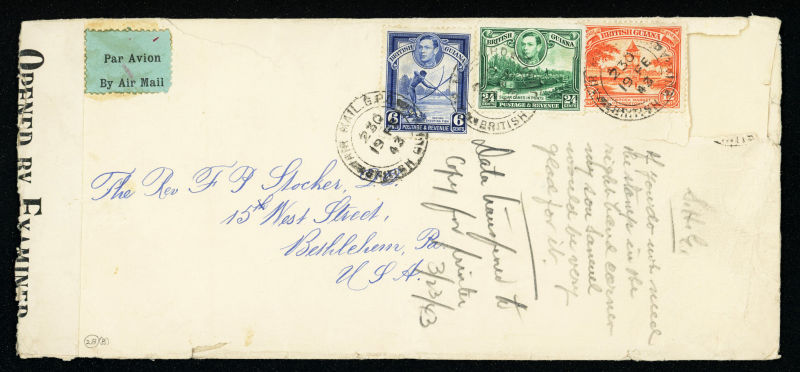 OPENED BY EXAMINER
Par Avion
By Air Mail
BRITISH GUIANA
6 CENTS
POSTAGE & REVENUE
6 CENTS
BRITISH GUIANA
24 CENTS
POSTAGE & REVENUE
24 CENTS
BRITISH GUIANA
AIR MAIL G.P.O.
2 30
19 FE
43
BRITISH
BRITISH
2 30
19 FE
43
The Rev F P Stocker,
15th West Street,
Bethlehem, Pa.
U.S.A.
Data transferred to
copy for printer
3/23/43
If you do not need
the stamp in the
right hand corner
my son Samuel
would be very
glad for it.
2B B